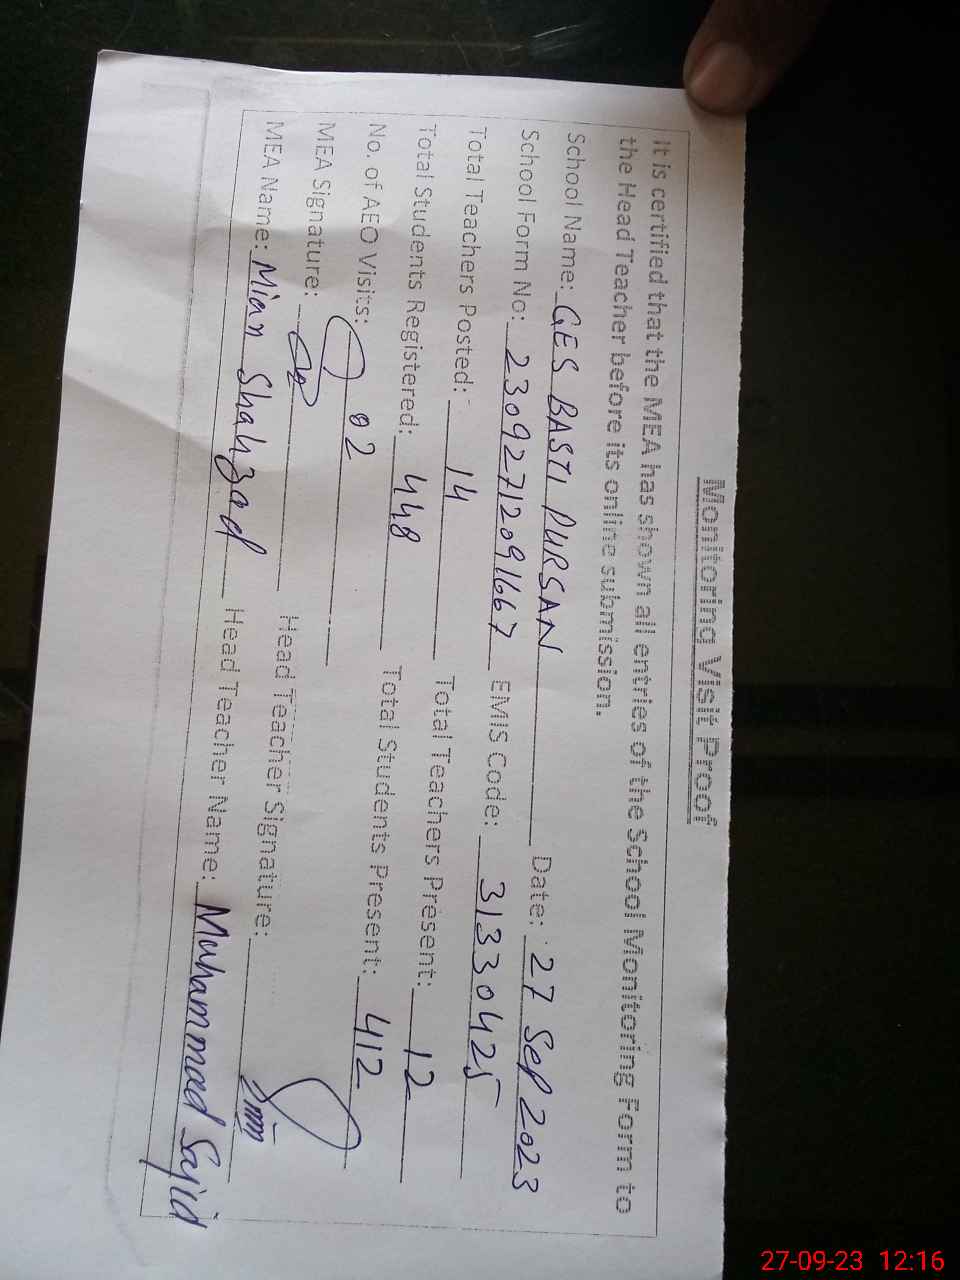 Monitoring Visit Proof
It is certified that the MEA has shown all entries of the School Monitoring Form to
the Head Teacher before its online submission.
School Name: GES BASTI PURSAN Date: 27 Sep 2023
School Form No: 23092712091667 EMIS Code: 31330425
Total Teachers Posted: 14 Total Teachers Present: 12
Total Students Registered: 448 Total Students Present: 412
No. of AEO Visits: 02
MEA Signature: Head Teacher Signature:
MEA Name: Mian Shahzad Head Teacher Name: Muhammad Sajid
27-09-23 12:16